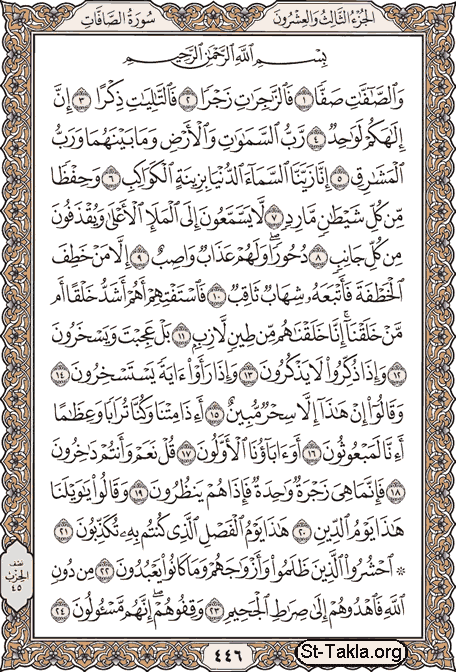 سورة الصافات
الجزء الثالث والعشرون
بِسْمِ اللَّهِ الرَّحْمَٰنِ الرَّحِيمِ
وَالصَّافَّاتِ صَفًّا ١ فَالزَّاجِرَاتِ زَجْرًا ٢ فَالتَّالِيَاتِ ذِكْرًا ٣ إِنَّ
إِلَٰهَكُمْ لَوَاحِدٌ ٤ رَّبُّ السَّمَاوَاتِ وَالْأَرْضِ وَمَا بَيْنَهُمَا وَرَبُّ
الْمَشَارِقِ ٥ إِنَّا زَيَّنَّا السَّمَاءَ الدُّنْيَا بِزِينَةٍ الْكَوَاكِبِ ٦ وَحِفْظًا
مِّن كُلِّ شَيْطَانٍ مَّارِدٍ ٧ لَّا يَسَّمَّعُونَ إِلَى الْمَلَإِ الْأَعْلَىٰ وَيُقْذَفُونَ
مِن كُلِّ جَانِبٍ ٨ دُحُورًا ۖ وَلَهُمْ عَذَابٌ وَاصِبٌ ٩ إِلَّا مَنْ خَطِفَ
الْخَطْفَةَ فَأَتْبَعَهُ شِهَابٌ ثَاقِبٌ ١٠ فَاسْتَفْتِهِمْ أَهُمْ أَشَدُّ خَلْقًا أَم
مَّنْ خَلَقْنَا ۚ إِنَّا خَلَقْنَاهُم مِّن طِينٍ لَّازِبٍ ١١ بَلْ عَجِبْتَ وَيَسْخَرُونَ
١٢ وَإِذَا ذُكِّرُوا لَا يَذْكُرُونَ ١٣ وَإِذَا رَأَوْا آيَةً يَسْتَسْخِرُونَ ١٤
وَقَالُوا إِنْ هَٰذَا إِلَّا سِحْرٌ مُّبِينٌ ١٥ أَءِذَا مِتْنَا وَكُنَّا تُرَابًا وَعِظَامًا
أَءِنَّا لَمَبْعُوثُونَ ١٦ أَوَآبَاؤُنَا الْأَوَّلُونَ ١٧ قُلْ نَعَمْ وَأَنتُمْ دَاخِرُونَ
١٨ فَإِنَّمَا هِيَ زَجْرَةٌ وَاحِدَةٌ فَإِذَا هُمْ يَنظُرُونَ ١٩ وَقَالُوا يَا وَيْلَنَا
هَٰذَا يَوْمُ الدِّينِ ٢٠ هَٰذَا يَوْمُ الْفَصْلِ الَّذِي كُنتُم بِهِ تُكَذِّبُونَ ٢١
۞ احْشُرُوا الَّذِينَ ظَلَمُوا وَأَزْوَاجَهُمْ وَمَا كَانُوا يَعْبُدُونَ ٢٢ مِن دُونِ
اللَّهِ فَاهْدُوهُمْ إِلَىٰ صِرَاطِ الْجَحِيمِ ٢٣ وَقِفُوهُمْ ۖ إِنَّهُم مَّسْئُولُونَ ٢٤
نصف
الحزب
٤٥
٤٤٦
St-Takla.org